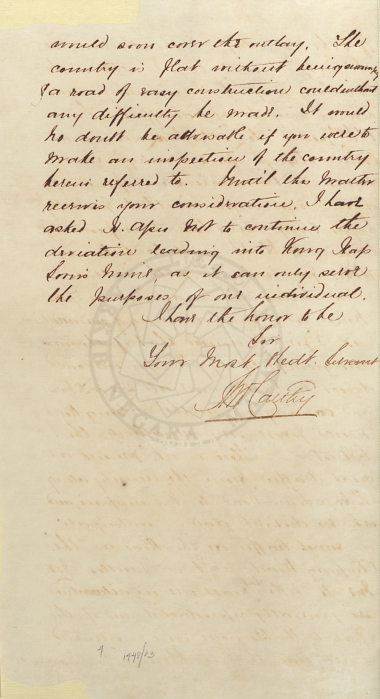 would soon cover the outlay. The
country is flat without being swampy
& a road of easy construction could without
any difficulty be made. It would
no doubt be advisable if you were to
make an inspection of the country
herein referred to. Until this matter
receives your consideration, I have
asked H. Apu not to continue the
deviation leading into Kong Nap
Soon's Mine, as it can only serve
the purposes of one individual.
I have the honor to be
Sir
Your Most Obedt. Servant
NEGARA
4 1798/03